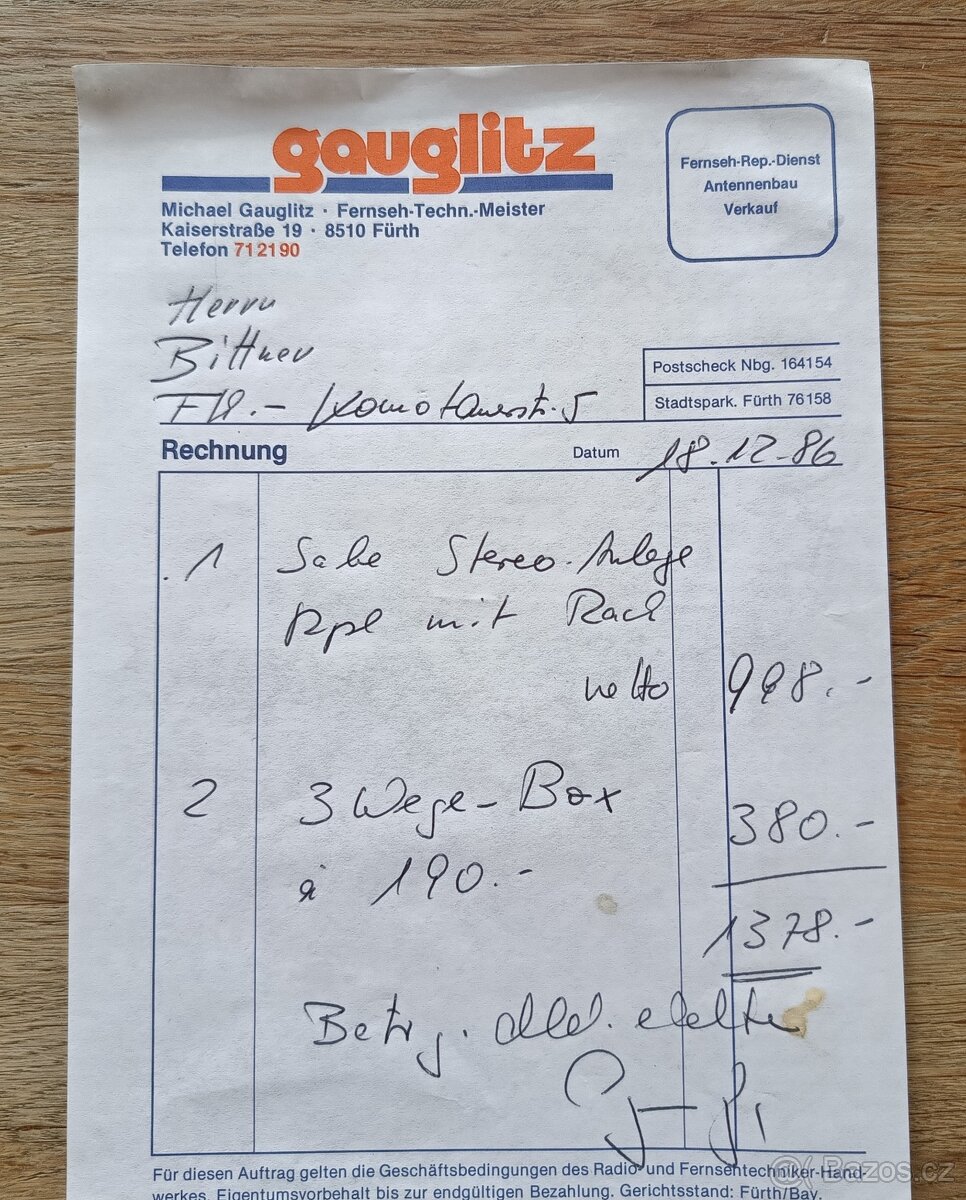 gauglitz
Fernseh-Rep.-Dienst
Antennenbau
Verkauf
Michael Gauglitz · Fernseh-Techn.-Meister
Kaiserstraße 19 · 8510 Fürth
Telefon 71 21 90
Herrn
Bittner
Postscheck Nbg. 164154
Stadtspark. Fürth 76158
Rechnung Datum 18.12.86
1 Saba Stereo-Anlage
mit Rack
netto 998.-
2 3 Wege-Box 380.-
à 190.-
1378.-
Für diesen Auftrag gelten die Geschäftsbedingungen des Radio- und Fernsehtechniker-Hand-
werkes. Eigentumsvorbehalt bis zur endgültigen Bezahlung. Gerichtsstand: Fürth/Bay.
Bazos.cz